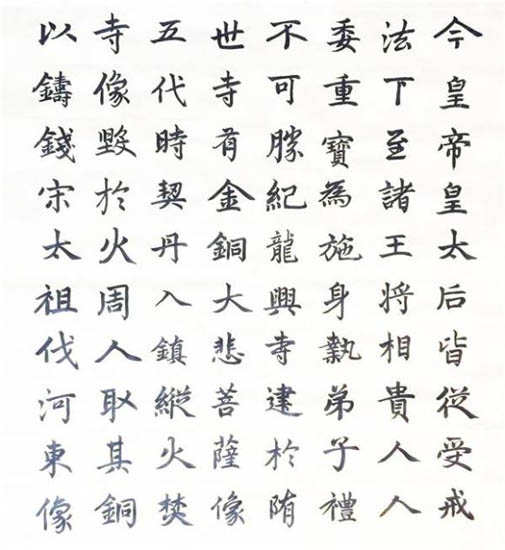 今皇帝皇太后皆從受戒
法下至諸王將相貴人人
委重寶為施身執弟子禮
不可勝紀龍興寺建於隋
世寺有金銅大悲菩薩像
五代時契丹入鎮縱火焚
寺像毀於火周人取其銅
以鑄錢宋太祖伐河東像